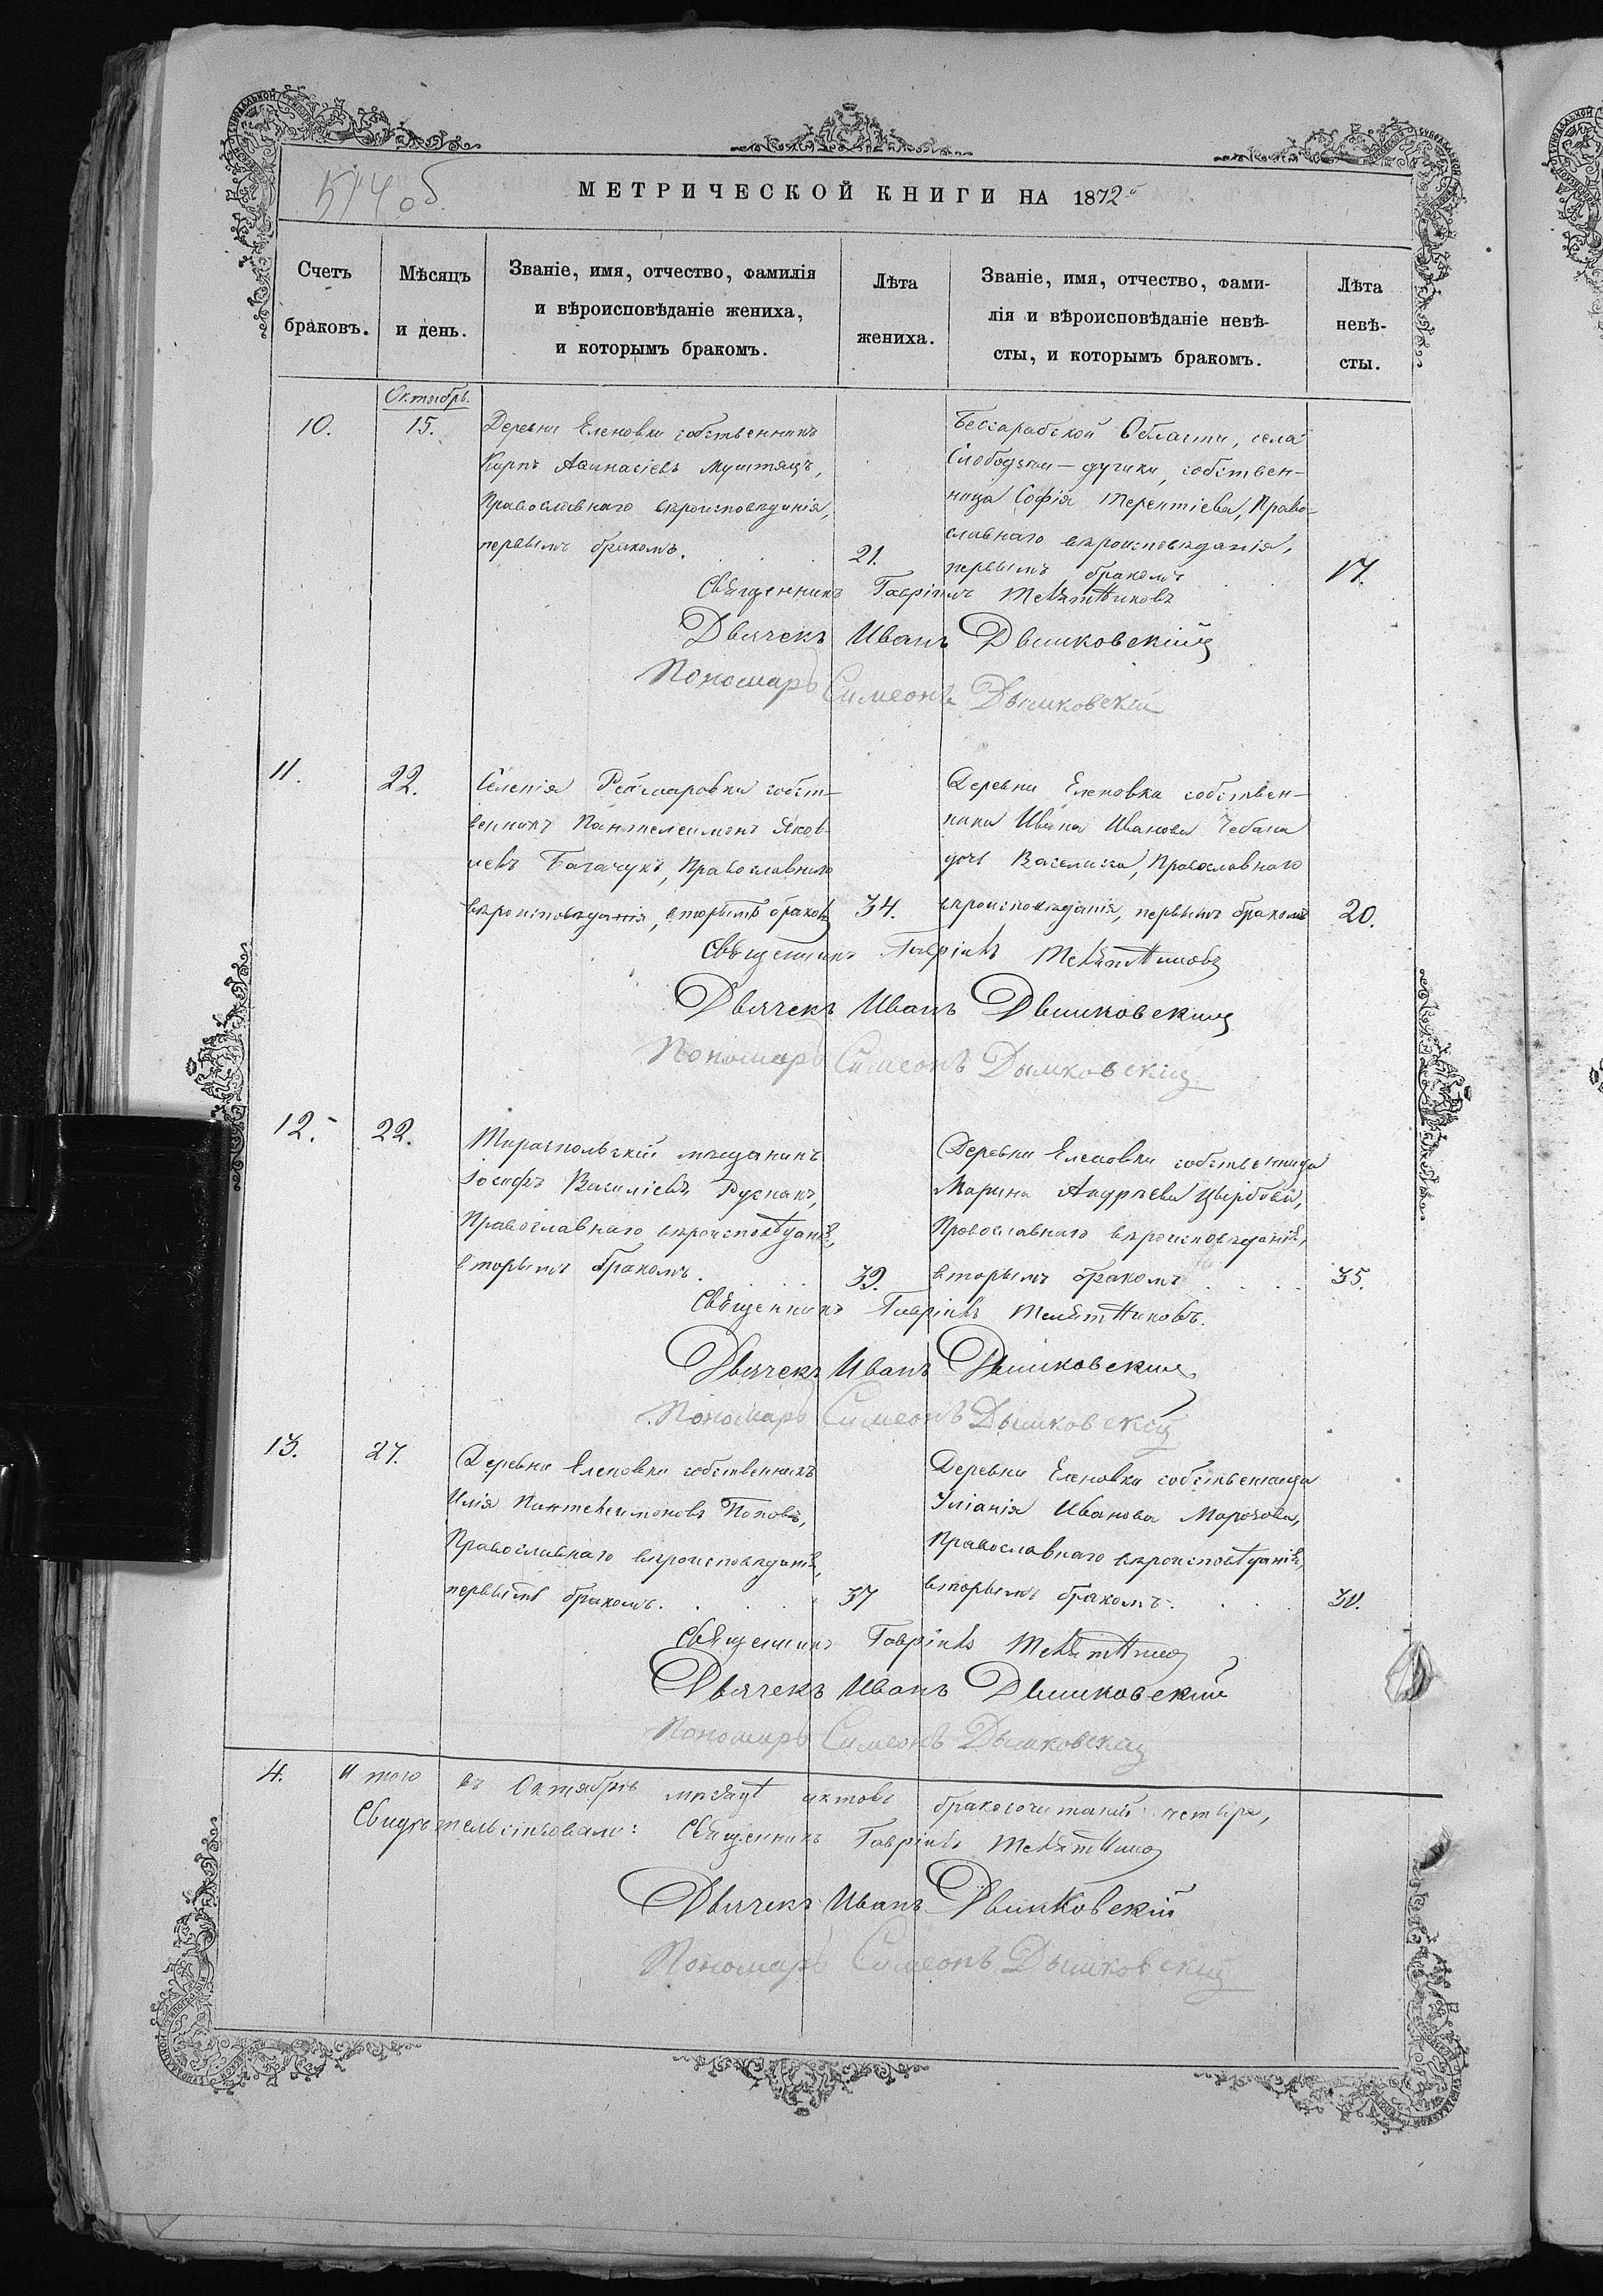 574 об
МЕТРИЧЕСКОЙ КНИГИ НА 1872й
Счетъ браковъ.
Мѣсяцъ и день.
Званіе, имя, отчество, фамилія
и вѣроисповѣданіе жениха,
и которымъ бракомъ.
Лѣта жениха.
Званіе, имя, отчество, фами-
лія и вѣроисповѣданіе невѣ-
сты, и которымъ бракомъ.
Лѣта невѣ-
сты.
Октябрь.
10.
15.
Деревни Еленовки собственникъ
Карпъ Афанасіевъ Муштяцъ,
Православнаго вѣроисповѣданія,
первымъ бракомъ.
21.
Бессарабской Области, села
Слободзеи-дучики, собствен-
ница Софія Терентіева, Право-
славнаго вѣроисповѣданія,
первымъ бракомъ
17.
Священникъ Гавріилъ Телятниковъ
Дьячекъ Иванъ Дымковскій
Пономарь Симеонъ Дымковскій
11.
22.
Селенія Реймаровки собст-
венникъ Пантелеимонъ Яков-
левъ Багачукъ, Православнаго
вѣроисповѣданія, вторымъ бракомъ
34.
Деревни Еленовки собствен-
ника Ивана Иванова Чебана
дочь Василиса, Православнаго
вѣроисповѣданія, первымъ бракомъ
20.
Священникъ Гавріилъ Телятниковъ
Дьячекъ Иванъ Дымковскій
Пономарь Симеонъ Дымковскій
12.
22.
Тираспольскій мѣщанинъ
Іосифъ Василіевъ Руснакъ,
Православнаго вѣроисповѣданія,
вторымъ бракомъ.
39.
Деревни Еленовки собственница
Марина Андрѣева
Православнаго вѣроисповѣданія,
вторымъ бракомъ
35.
Священникъ Гавріилъ Телятниковъ.
Дьячекъ Иванъ Дымковскій
Пономарь Симеонъ Дымковскій
13.
27.
Деревни Еленовки собственникъ
Илія Пантелеимоновъ Поповъ,
Православнаго вѣроисповѣданія,
первымъ бракомъ.
37
Деревни Еленовки собственница
Уліанія Иванова Марозова,
Православнаго вѣроисповѣданія,
вторымъ бракомъ.
30.
Священникъ Гавріилъ Телятниковъ
Дьячекъ Иванъ Дымковскій
Пономарь Симеонъ Дымковскій
4. Итого въ Октябрѣ мѣсяцѣ актовъ бракосочитаній четыре,
Свидѣтельствовали: Священникъ Гавріилъ Телятниковъ
Дьячекъ Иванъ Дымковскій
Пономарь Симеонъ Дымковскій